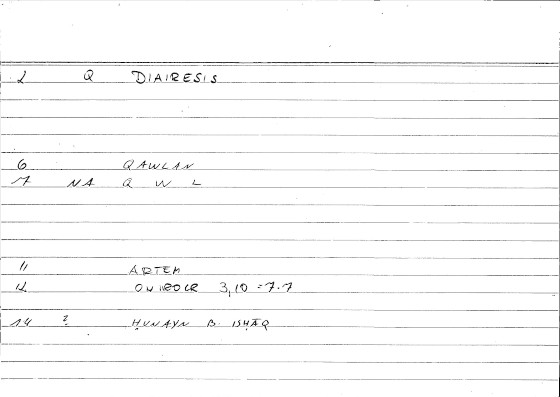 2 Q DIAIRESIS
6 QAWLAN
7 NA Q W L
11 ARTEM
12 ONIROCR 3,10 = 7.7
14 ? ḤUNAYN B. ISḤĀQ